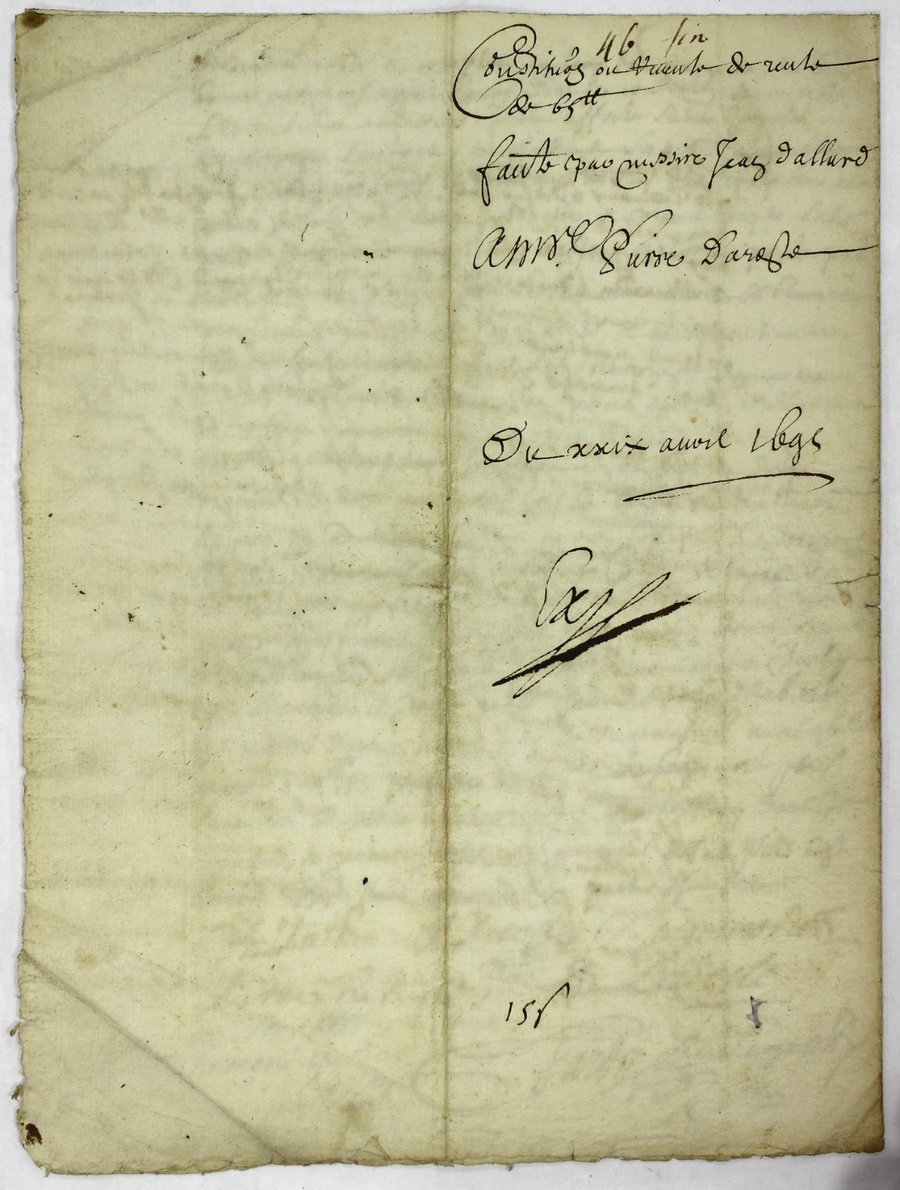 46 fin
Constituōn ou vante de rente
de 65ᵗᵗ
faicte par messire Jean dallard
A mʳᵉ Pierre Dareste
Du xxix avril 1695
Ex
15s